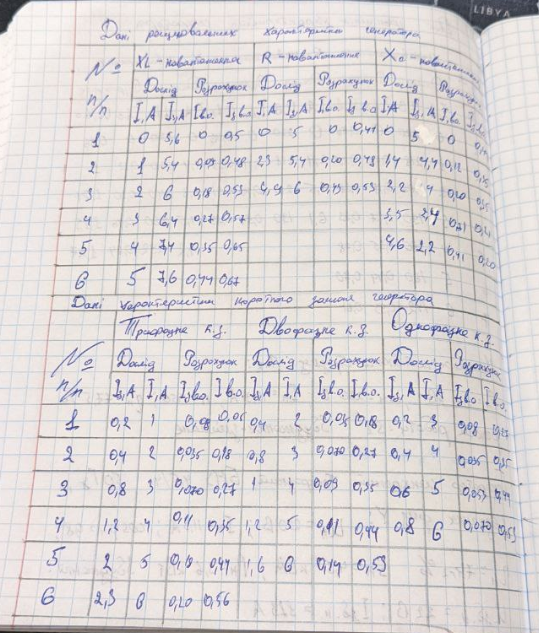 LIBYA
Дані регулювальних характеристик генератора
№ п/п XL - навантаження R - навантаження Xc - навантаження
Дослід Розрахунок Дослід Розрахунок Дослід Розрахунок
I,A Iз,A Iв.о Iзв.о I,A Iз,A Iв.о Iзв.о I,A Iз,A Iв.о Iзв.о
1 0 5,6 0 0,5 0 5 0 0,44 0 5 0
2 1 5,4 0,09 0,48 2,3 5,4 0,20 0,48 1,4 4,4 0,12
3 2 6 0,18 0,53 4,9 6 0,43 0,53 2,2 4 0,20 0,35
4 3 6,4 0,27 0,57 3,5 2,4 0,21
5 4 7,4 0,35 0,65 4,6 2,2 0,41 0,20
6 5 7,6 0,44 0,67
Дані характеристик короткого замкн генератора
Трифазне к.з. Двофазне к.з. Однофазне к.з.
№ п/п Дослід Розрахунок Дослід Розрахунок Дослід Розрахунок
Iз,A I,A Iзв.о. Iв.о. Iз,A I,A Iзв.о. Iв.о. Iз,A I,A Iзв.о. Iв.о.
1 0,2 1 0,4 2 0,035 0,18 0,2 3 0,08 0,27
2 0,4 2 0,035 0,18 0,8 3 0,070 0,27 0,4 4 0,035 0,35
3 0,8 3 0,070 0,27 1 4 0,09 0,35 0,6 5 0,053 0,44
4 1,2 4 0,11 0,35 1,2 5 0,11 0,44 0,8 6 0,070 0,53
5 2 5 0,18 0,44 1,6 6 0,14 0,53
6 2,3 6 0,20 0,56